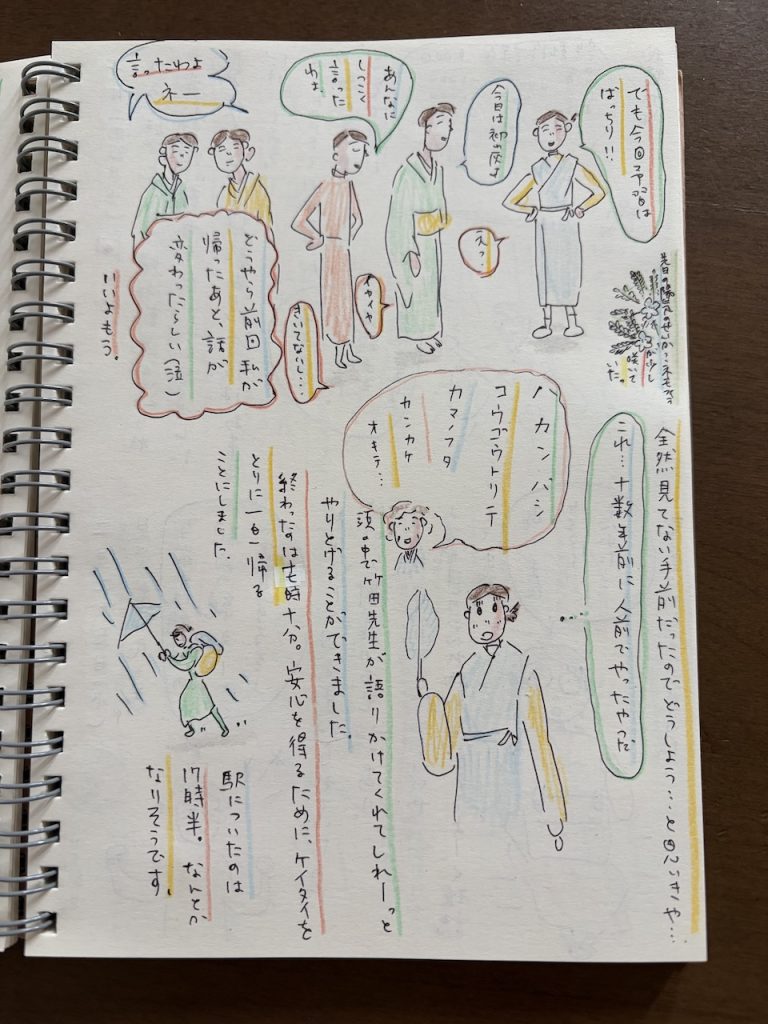 でも今回予習は
ばっちり!!
今日は初炭よ
えっ
あんなに
しつこく
言った
わよ
イヤイヤ
きいてないし…
言ったわよ
ネー
どうやら前回私が
帰ったあと、話が
変わったらしい(泣)
いいよもう。
先日の陽気のせいか
少し
咲いて
いた。
全然見てない手前だったのでどうしよう…と思いきや…
これ…十数年前に人前でやったやつだ
ハカンバシ
コウゴウトリテ
カマノフタ
カンカケ
オキテ…
頭の中で竹田先生が語りかけてくれてしれーっと
やりとげることができました。
終わったのは七時十分。安心を得るために、ケイタイを
とりに一旦帰る
ことにしました。
駅についたのは
17時半。なんとか
なりそうです。